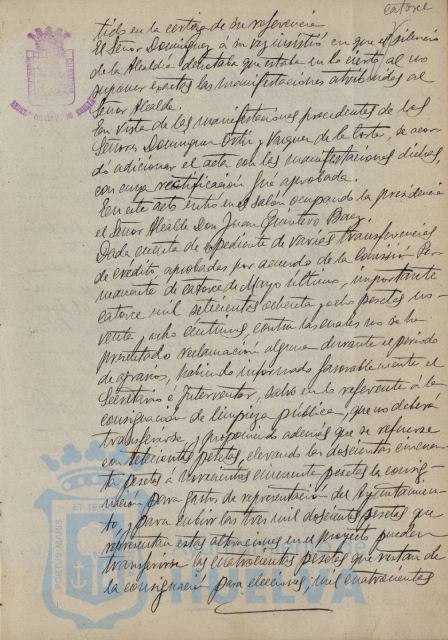 catorce
tido en la certeza de su referencia
El Señor Dominguez á su vez insistió en que el silencio
de la Alcaldía delataba que estaba en lo cierto, al no
suponer exactas las manifestaciones atribuidas al
Señor Alcalde.
En vista de las manifestaciones precedentes de los
Señores Dominguez Ortiz y Vazquez de la Corte, se acor
dó adicionar el acta con las manifestaciones dichas
con cuya rectificación fué aprobada.
En este acto entró en el salón ocupando la presidencia
el Señor Alcalde Don Juan Quintero Baez.
Dada cuenta de expediente de varias transferencias
de crédito, aprobadas por acuerdo de la Comisión Per
manente de catorce de Mayo último, importante
catorce mil setecientas ochenta y ocho pesetas no
venta y ocho centimos contra las cuales no se ha
presentado reclamación alguna durante el periodo
de agravios, habiendo informado favorablemente el
Secretario é Interventor, salvo en lo referente á la
consignación de limpieza pública, que no deberá
transferirse, y proponiendo además que se refuerze
con setecientas pesetas, elevando las doscientas cincuen
ta pesetas á novecientas cincuenta pesetas la consig
nación para gastos de representación del Ayuntamien
to, y para cubrir las tres mil doscientas pesetas que
representan estas alteraciones en el proyecto pueden
transferirse las cuatrocientas pesetas que restan de
la consignación para elecciones; mil cuatrocientas
PORTUS MARIS
ET TER
HUELVA